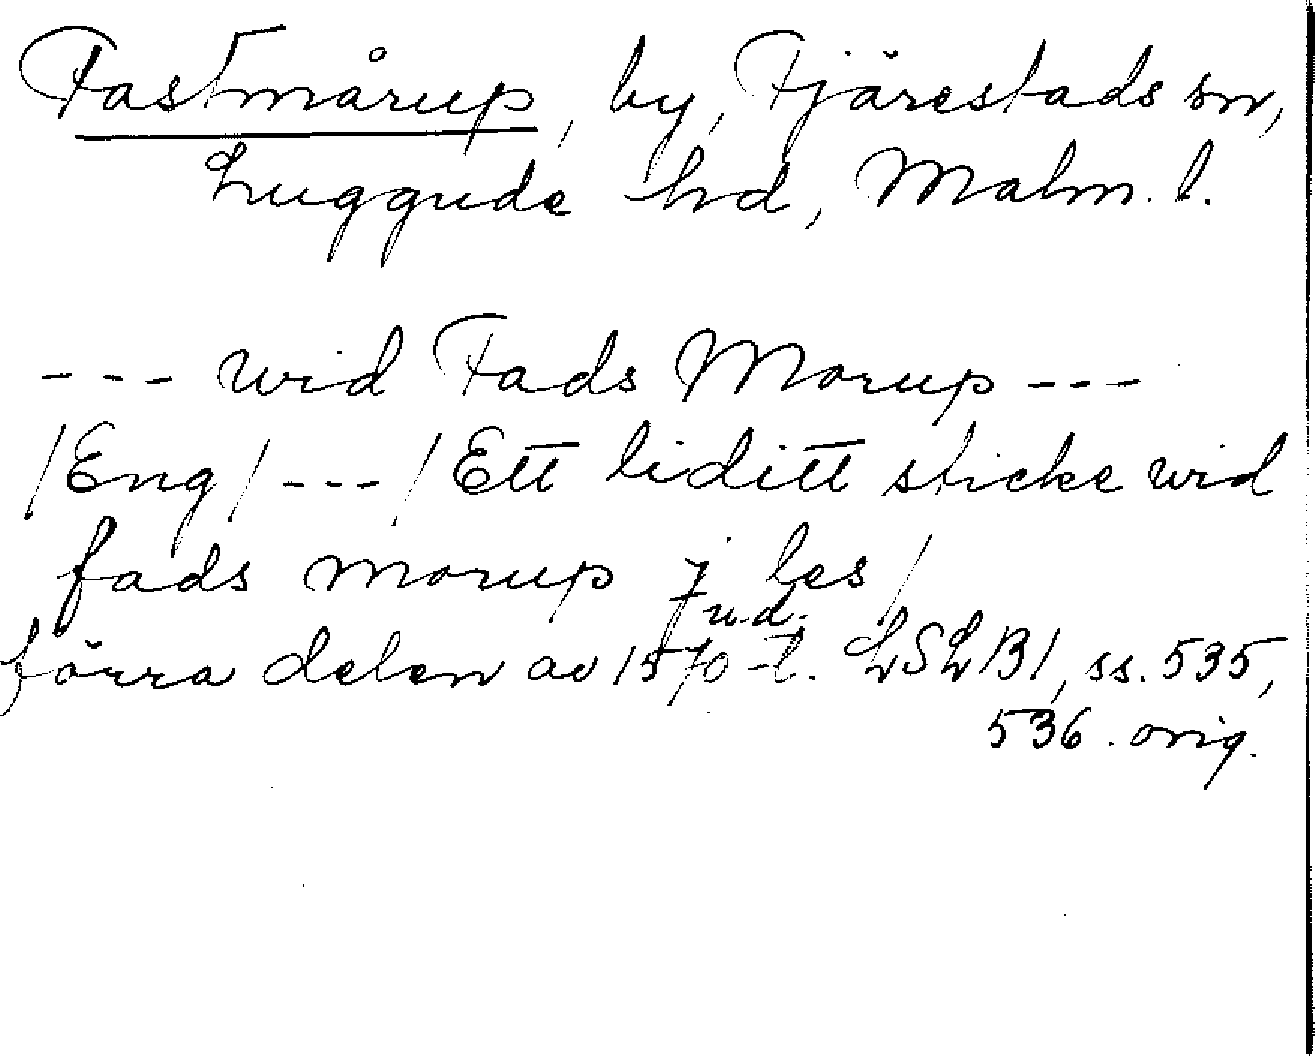 Fastmårup, by, Fjärestads sn,
Luggude hd, Malm. l.
--- wid Fads Morup ---
/Eng/ --- /Ett liditt sticke wid
fads morup j les/
förra delen av 1570-t. LSLB1, ss. 535,
536. orig.